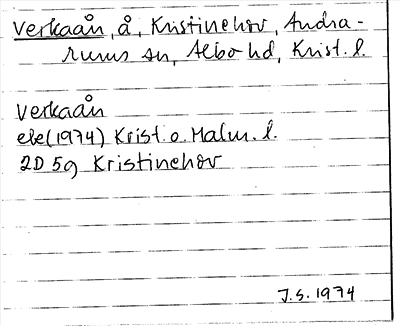 Verkaån, å, Kristinehov, Andra-
rums sn, Albo hd, Krist. l.
Verkaån
eke(1974) Krist. o. Malm. l.
2D 5g Kristinehov
J.S. 1974